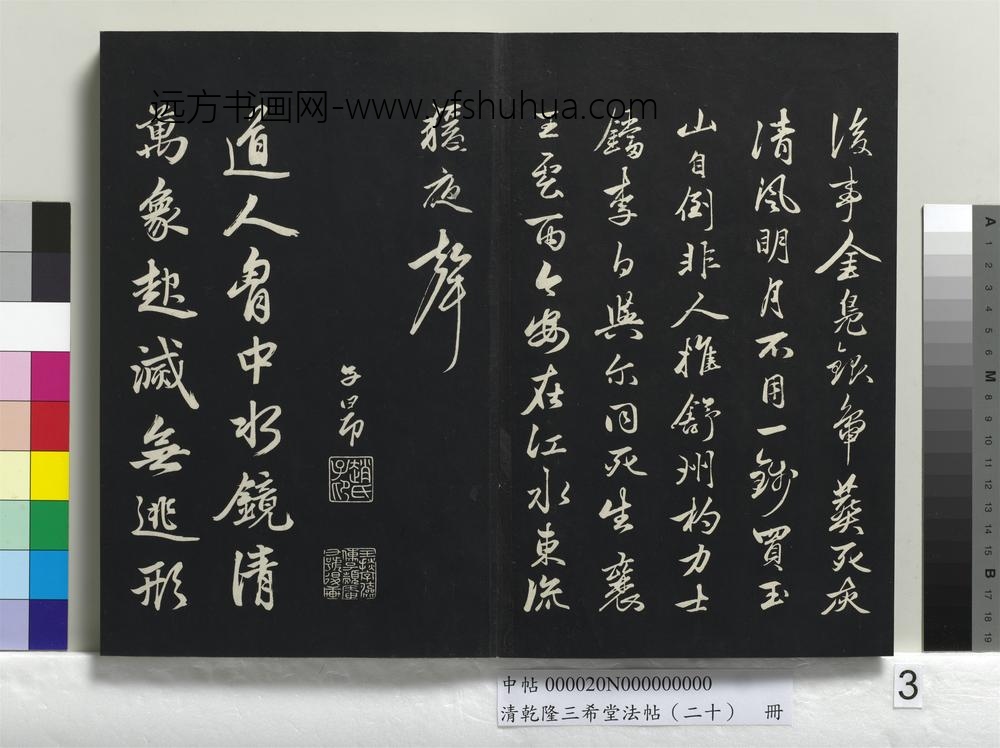 後事金鳧銀鴨葬死灰
清風明月不用一錢買玉
山自倒非人推舒州杓力士
鐺李白與尔同死生襄
王雲雨今安在江水東流
猿夜聲
子昂
道人胷中水鏡清
萬象起滅無逃形
远方书画网-www.yfshuhua.com
中帖 000020N000000000
清乾隆三希堂法帖（二十） 冊
3
A 1 2 3 4 5 6 M 8 9 10 11 12 13 14 15 B 17 18 19